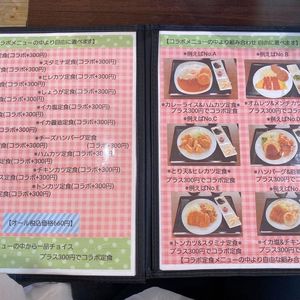 ラボメニューの中より自由に選べます】
定食(コラボ+300円)
＊スタミナ定食(コラボ+300円)
定食(コラボ+300円)
＊ヒレカツ定食(コラボ+300円)
定食(コラボ+300円)
＊しょうが定食(コラボ+300円)
定食(コラボ+300円)
＊イカ塩定食(コラボ+300円)
＊チーズハンバーグ定食
定食(コラボ+300円)
(コラボ+300円)
ハムカツ定食(コラボ+300円)
＊チキンカツ定食(コラボ+300円)
＊トンカツ定食(コラボ+300円)
【オール税込価格660円】
ューの中から一品チョイス
プラス300円でコラボ定食
【コラボメニューの中より組み合わせ自由に選べます】
＊例えばNo.A
＊例えばNo.B
＊カレーライス&ハムカツ定食
プラス300円でコラボ定食
＊オムレツ&メンチカツ
プラス300円でコラ
＊例えばNo.C
＊例えばNo.D
＊とり天&ヒレカツ定食
プラス300円でコラボ定食
＊ハンバーグ&
プラス300円でコラ
＊例えばNo.E
＊例えばNo.
＊トンカツ&スタミナ定食
プラス300円でコラボ定食
＊イカ塩&チキン
プラス300円でコラ
【コラボ定食メニューの中より自由な組み合